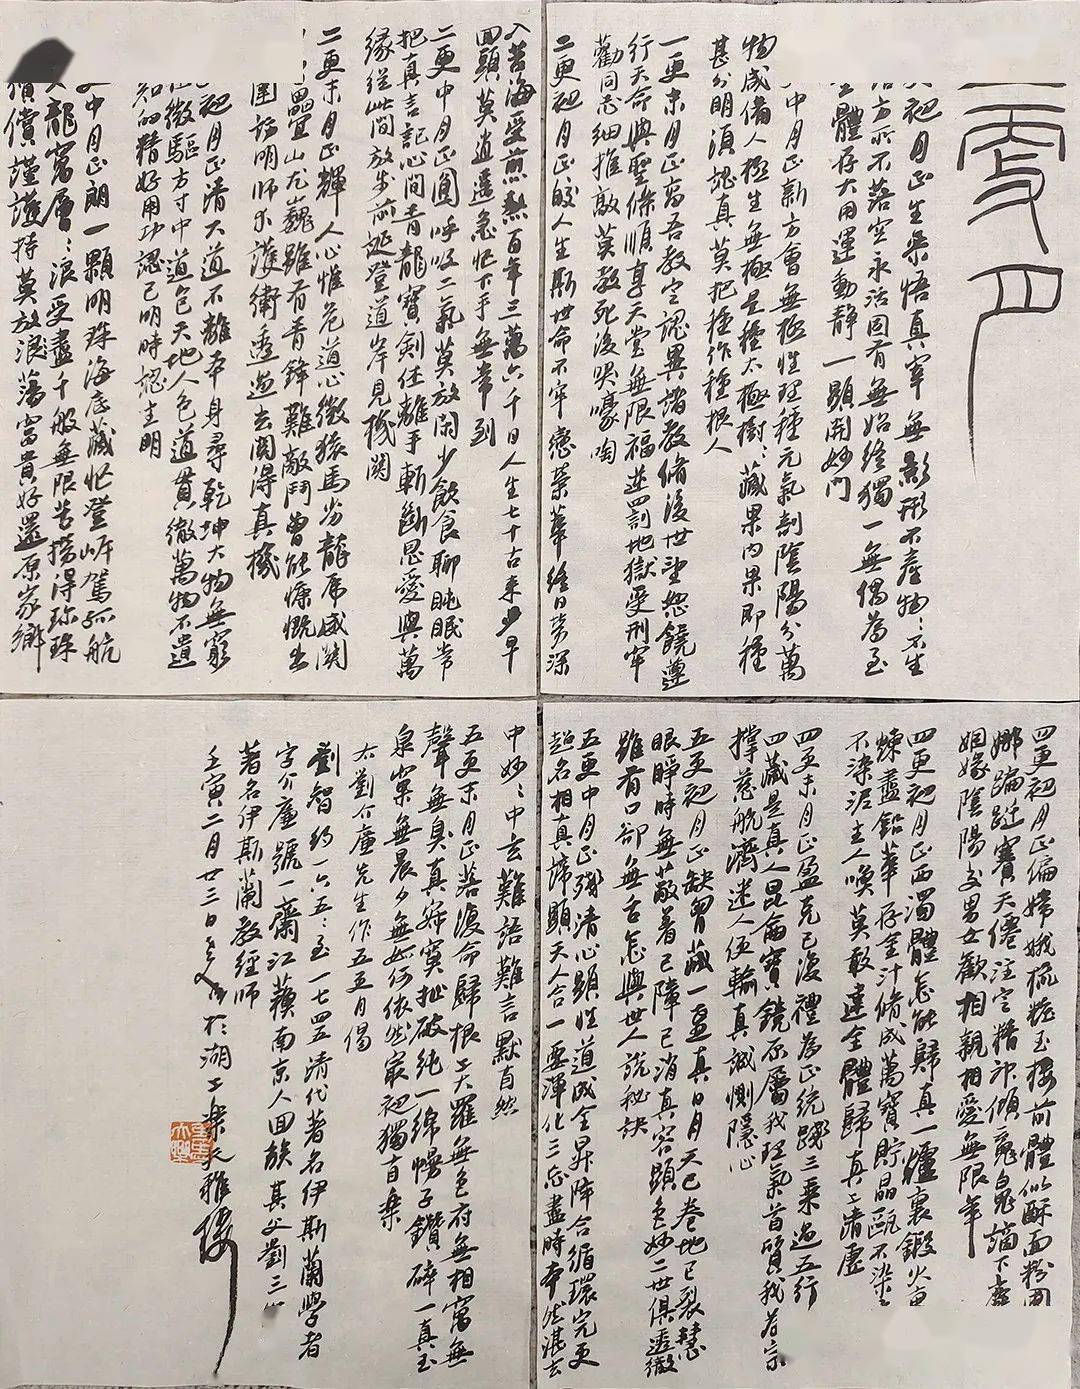 五更月
初月正生参悟真宰無影形不産物物不生
活方所不落空永活固有無始終獨一無偶為至
體存大用運動静一顯開妙門
中月正新方會無極性理種元氣剖陰陽分萬
物成備人極生無極是種太極樹樹藏果内果即種
甚分明須認真莫把種作種根人
一更末月正高吾教定認異諸教脩後世望恕饒遵
行天命與聖條順享天堂無限福逆罰地獄受刑牢
勸同志細推敲莫教死後哭嚎啕
二更初月正皎人生斯世命不牢戀榮華終日勞深
入苦海受煎熬百年三萬六千日人生七十古来少早
回頭莫逍遥急忙下手無常到
二更中月正圓呼吸二氣莫放閑少飲食聊眈眠常
把真言記心間青龍寶劍任離手斬斷恩愛與萬
緣從此間放步前誕登道岸見機關
二更末月正輝人心惟危道心微猿馬劣龍虎威關
疊疊山尤巍雖有青鋒難敵鬥曾能慷慨出
圍訪明師求護衛透過玄關得真機
初月正清大道不離本身尋乾坤大物無窮
微驅方寸中道包天地人包道貫徹萬物不遺
知的精好用功認己明時認主明
更中月正朗一顆明珠海底藏忙登岍駕孤航
龍窩層層浪受盡千般無限苦撈得珍珠
償價謹護持莫放浪蕩富貴好還原家鄉
四更初月正偏嫦娥梳粧玉樓前體似酥面粉團
娜蹁躚賽天僊注定精神傾魂魄謫下塵
姻緣陰陽交男女歡相親相愛無限年
四更初月正西濁體怎能歸真一爐裏鍛火裏
煉盡鉛華存金汁脩成萬寶貯晶甌不染
不染泥主人喚莫敢違全體歸真上清虛
四更末月正盈克己復禮為正統踐三乘過五行
四藏是真人昆侖寶鏡原屬我理氣首質我為宗
撑慈航濟迷人便輪真誠惻隱心
五更初月正缺胃藏一盞真日月天已卷地已裂慧
眼睜時無蔽着己障已消真容顯色妙二世俱透徹
雖有口卻無舌怎與世人説秘訣
五更中月正殘清心顯性道成全昇降合循環完更
超名相真諦顯天人合一要渾化三忘盡時本然湛玄
中妙妙中玄難語難言默自然
五更末月正落復命歸根上大羅無色府無相窩無
聲無臭真寂寞扯破純一綿幔子鑽碎一真玉
泉窠無晨夕無如何依然最初獨自樂
右劉介廉先生作五更月偈
劉智約一六五五至一七四五清代著名伊斯蘭學者
字介廉號一齋江蘇南京人回族其父劉三
著名伊斯蘭教經師
壬寅二月廿三日於湖上樂天雅樓